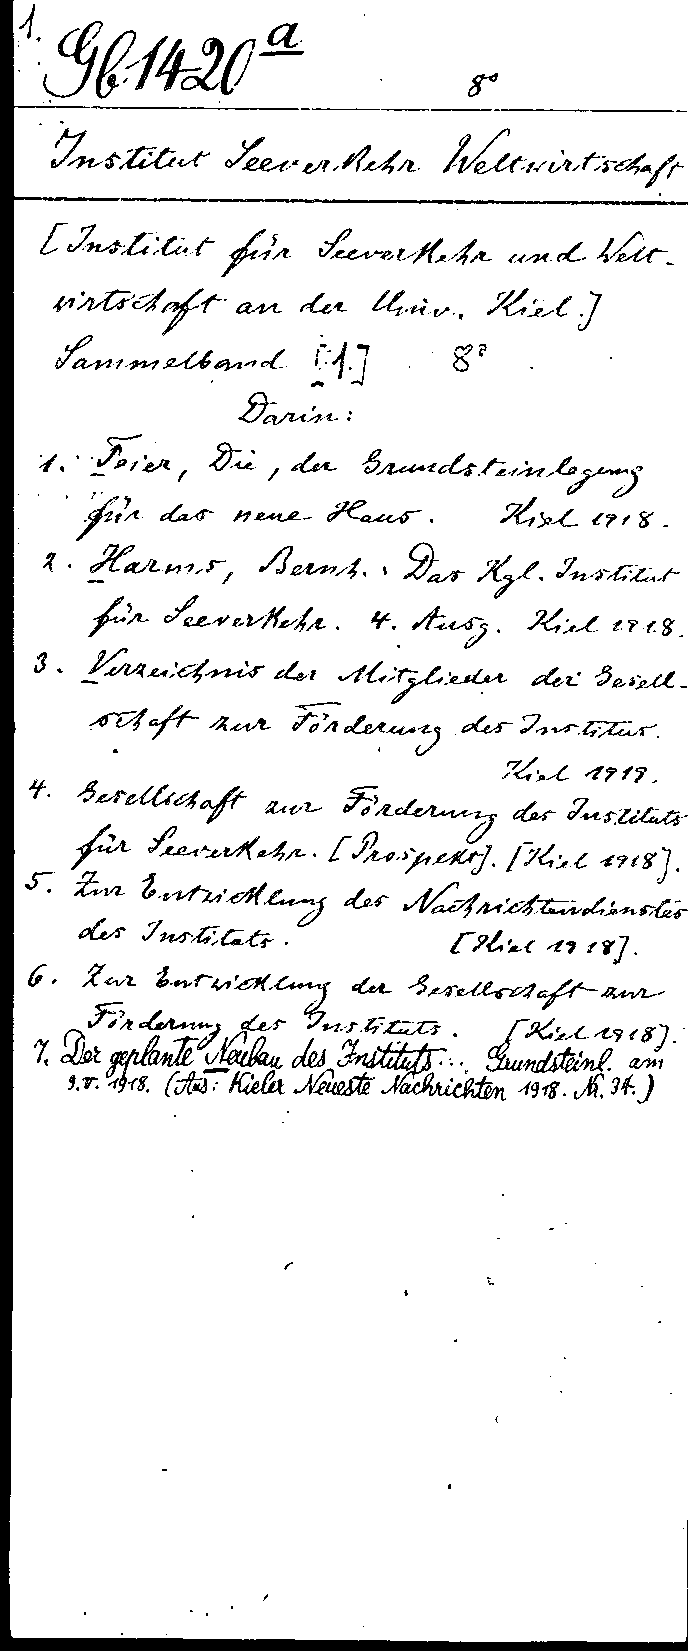 1.
Gb 1420 a
8°
Institut Seeverkehr Weltwirtschaft
[Institut für Seeverkehr und Welt-
wirtschaft an der Univ. Kiel.]
Sammelband [1.] 8°
Darin:
1. Feier, Die, der Grundsteinlegung
für das neue Haus. Kiel 1918.
2. Harms, Bernh.: Das Kgl. Institut
für Seeverkehr. 4. Ausg. Kiel 1918.
3. Verzeichnis der Mitglieder der Gesell-
schaft zur Förderung des Institus.
Kiel 1919.
4. Gesellschaft zur Förderung des Instituts
für Seeverkehr. [Prospekt]. [Kiel 1918].
5. Zur Entwicklung des Nachrichtendienstes
des Instituts. [Kiel 1918].
6. Zur Entwicklung der Gesellschaft zur
Förderung des Instituts. [Kiel 1918].
7. Der geplante Neubau des Instituts... Grundsteinl. am
9.V. 1918. (Aus: Kieler Neueste Nachrichten 1918. Nr. 34.)